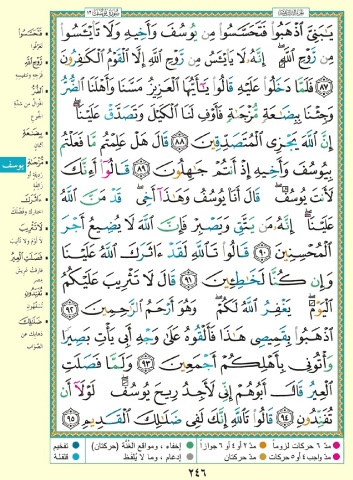 سورة يوسف ١٢
يَـٰبَنِىَّ ٱذْهَبُوا۟ فَتَحَسَّسُوا۟ مِن يُوسُفَ وَأَخِيهِ وَلَا تَا۟يْـَٔسُوا۟
مِن رَّوْحِ ٱللَّهِ ۖ إِنَّهُۥ لَا يَا۟يْـَٔسُ مِن رَّوْحِ ٱللَّهِ إِلَّا ٱلْقَوْمُ ٱلْكَـٰفِرُونَ
٨٧ فَلَمَّا دَخَلُوا۟ عَلَيْهِ قَالُوا۟ يَـٰٓأَيُّهَا ٱلْعَزِيزُ مَسَّنَا وَأَهْلَنَا ٱلضُّرُّ
وَجِئْنَا بِبِضَـٰعَةٍ مُّزْجَىٰةٍ فَأَوْفِ لَنَا ٱلْكَيْلَ وَتَصَدَّقْ عَلَيْنَآ ۖ
إِنَّ ٱللَّهَ يَجْزِى ٱلْمُتَصَدِّقِينَ ٨٨ قَالَ هَلْ عَلِمْتُم مَّا فَعَلْتُم
بِيُوسُفَ وَأَخِيهِ إِذْ أَنتُمْ جَـٰهِلُونَ ٨٩ قَالُوٓا۟ أَءِنَّكَ
لَأَنتَ يُوسُفُ ۖ قَالَ أَنَا۠ يُوسُفُ وَهَـٰذَآ أَخِى ۖ قَدْ مَنَّ ٱللَّهُ
عَلَيْنَآ ۖ إِنَّهُۥ مَن يَتَّقِ وَيَصْبِرْ فَإِنَّ ٱللَّهَ لَا يُضِيعُ أَجْرَ
ٱلْمُحْسِنِينَ ٩٠ قَالُوا۟ تَٱللَّهِ لَقَدْ ءَاثَرَكَ ٱللَّهُ عَلَيْنَا
وَإِن كُنَّا لَخَـٰطِـِٔينَ ٩١ قَالَ لَا تَثْرِيبَ عَلَيْكُمُ
ٱلْيَوْمَ ۖ يَغْفِرُ ٱللَّهُ لَكُمْ ۖ وَهُوَ أَرْحَمُ ٱلرَّٰحِمِينَ ٩٢
ٱذْهَبُوا۟ بِقَمِيصِى هَـٰذَا فَأَلْقُوهُ عَلَىٰ وَجْهِ أَبِى يَأْتِ بَصِيرًا
وَأْتُونِى بِأَهْلِكُمْ أَجْمَعِينَ ٩٣ وَلَمَّا فَصَلَتِ
ٱلْعِيرُ قَالَ أَبُوهُمْ إِنِّى لَأَجِدُ رِيحَ يُوسُفَ ۖ لَوْلَآ أَن
تُفَنِّدُونِ ٩٤ قَالُوا۟ تَٱللَّهِ إِنَّكَ لَفِى ضَلَـٰلِكَ ٱلْقَدِيمِ ٩٥
فَتَحَسَّسُوا
رَوْحِ ٱللَّهِ
ٱلضُّرُّ
بِبِضَاعَةٍ
مُزْجَاةٍ
يوسف
لَا تَثْرِيبَ
فَصَلَتِ ٱلْعِيرُ
تُفَنِّدُونِ
ضَلَـٰلِكَ
مدّ ٦ حركات لزوماً
مدّ ٢ أو ٤ أو ٦ جوازاً
إخفاء، ومواقع الغُنَّة (حركتان)
تفخيم
مدّ واجب ٤ أو ٥ حركات
مدّ حركتان
إدغام، وما لا يُلفظ
قلقلة
٢٤٦